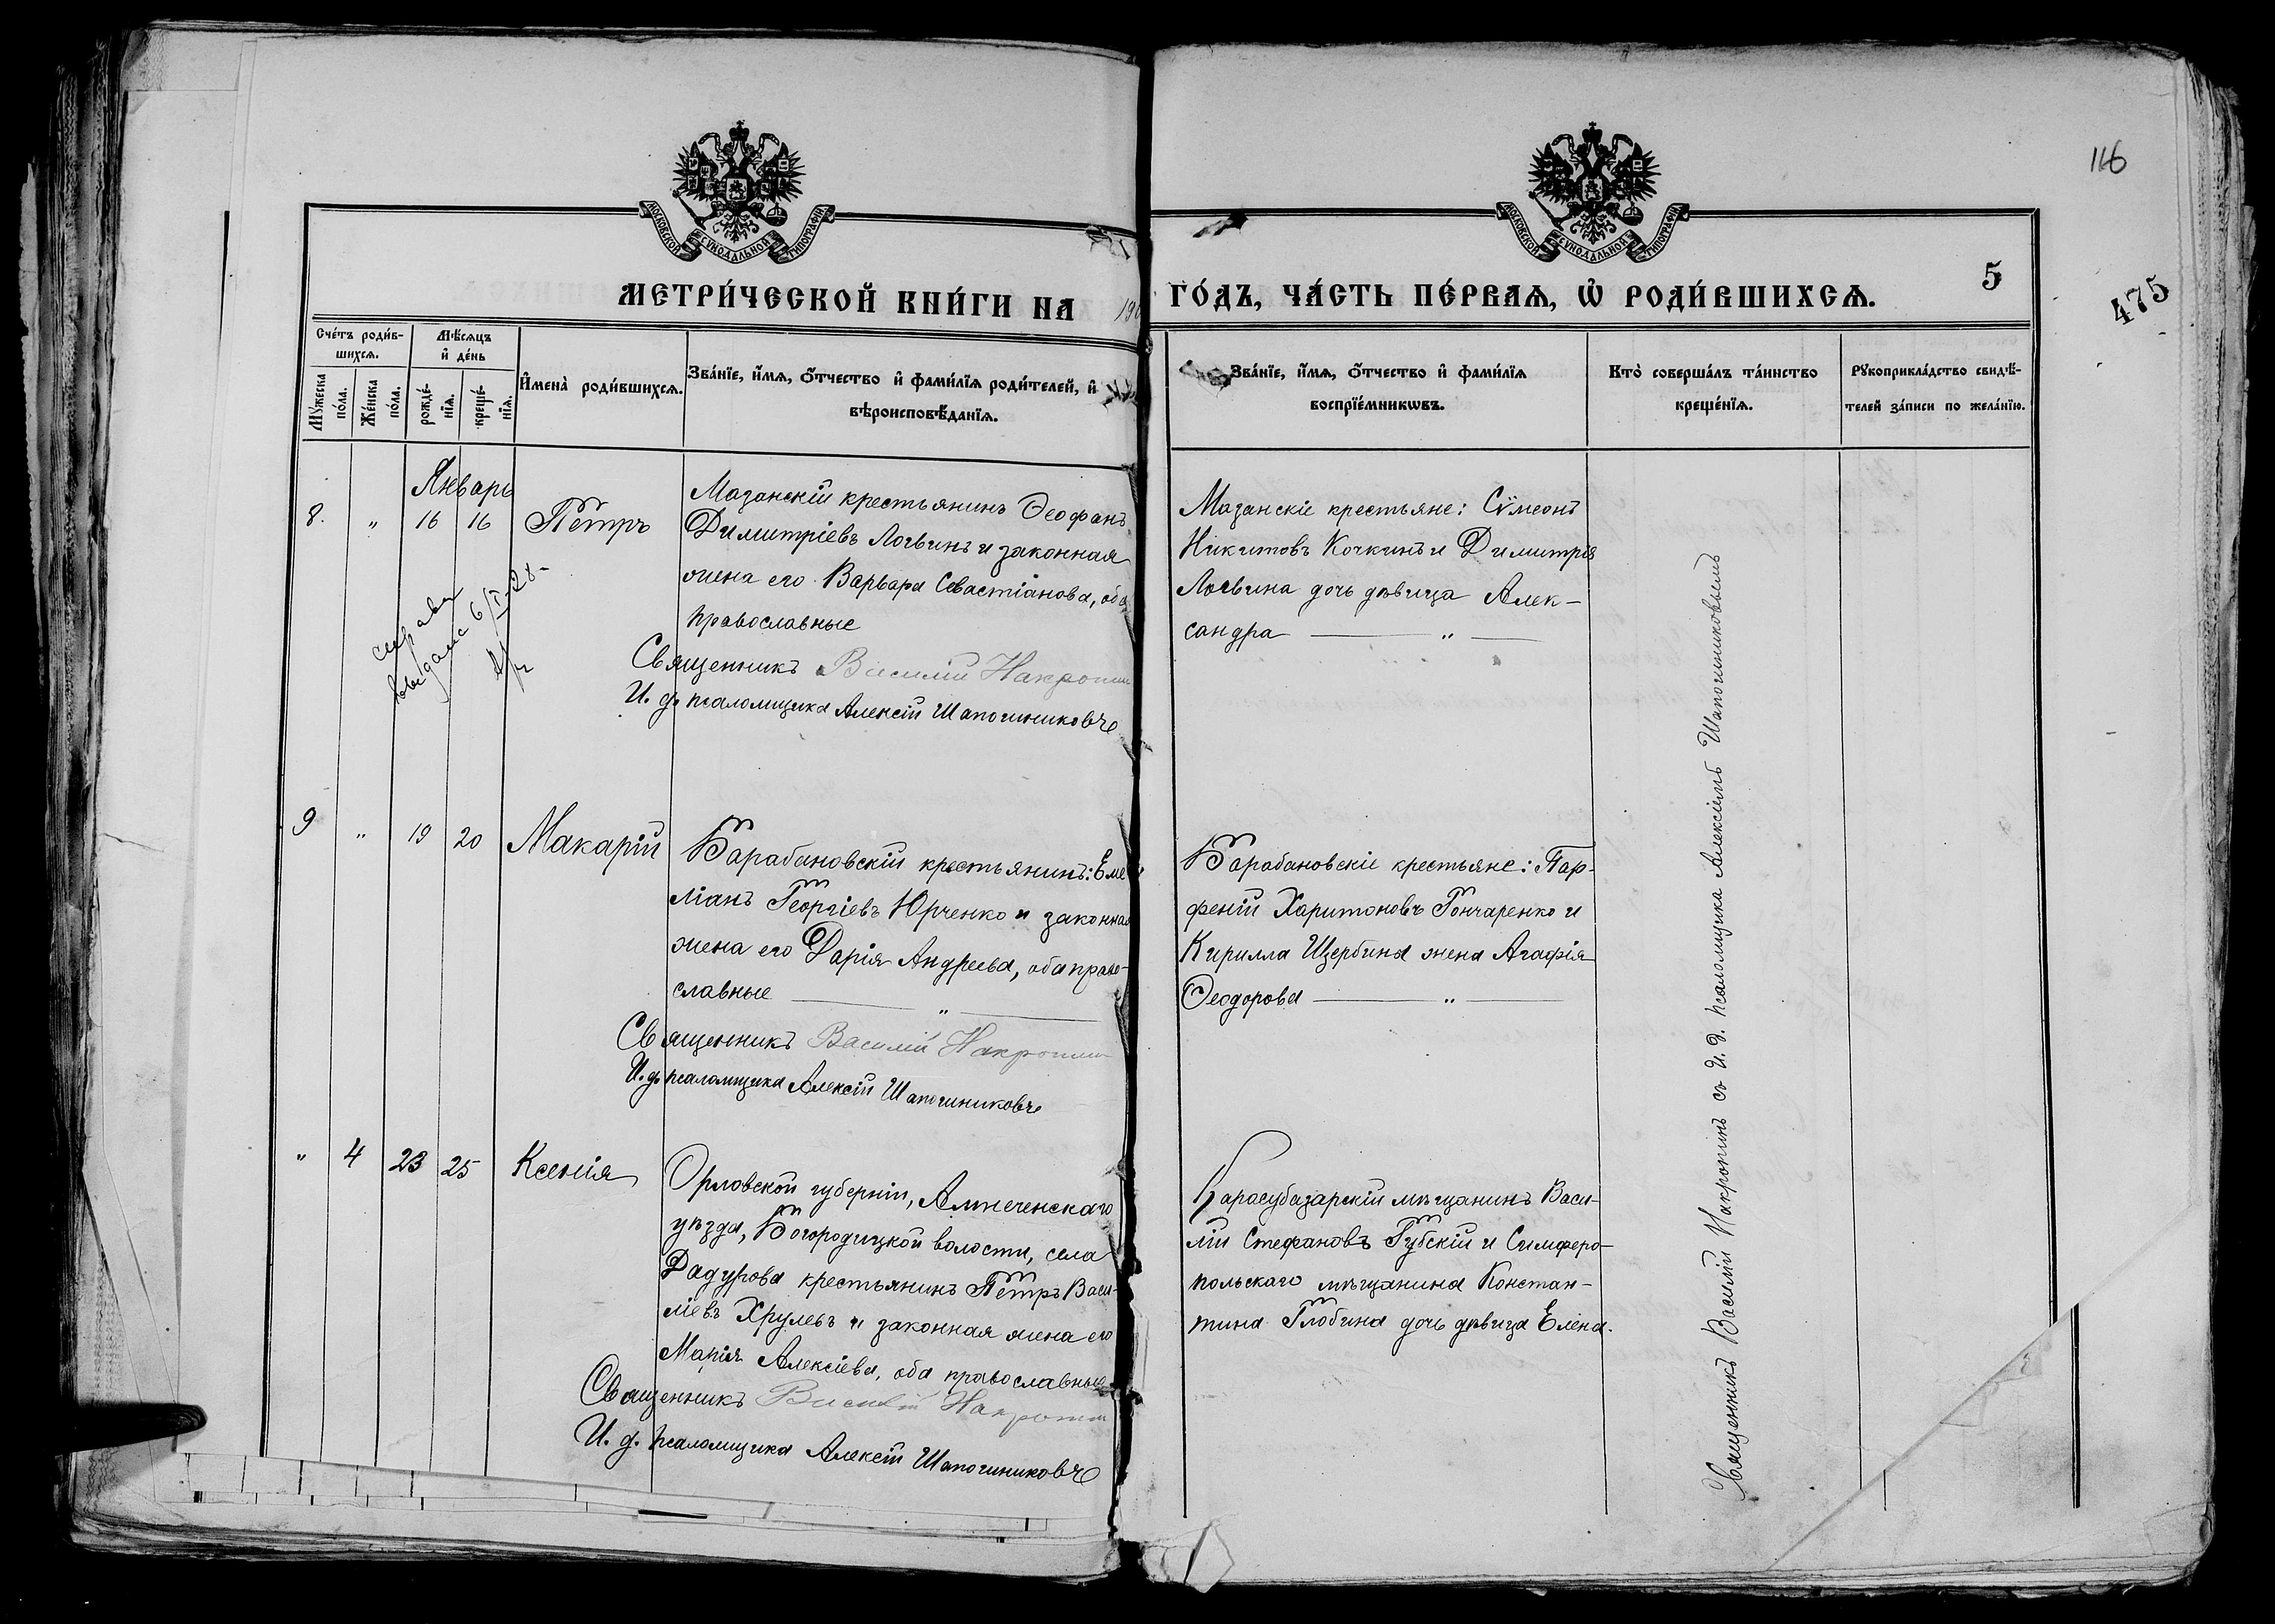 116
МОСКОВСКОЙ СѴНОДАЛЬНОЙ ТИПОГРАФІИ
МОСКОВСКОЙ СѴНОДАЛЬНОЙ ТИПОГРАФІИ
5
475
МЕТРИ́ЧЕСКОЙ КНИ́ГИ НА 190
ГО́ДЪ, ЧА́СТЬ ПЕ́РВАѦ, Ѡ҆ РОДИ́ВШИХСѦ.
Сче́тъ роди́в-
шихсѧ.
Мѣ́сѧцъ
и҆ де́нь
Мꙋ́жеска
по́ла.
Же́нска
по́ла.
рожде́-
нїѧ.
креще́-
нїѧ.
И҆мена̀ роди́вшихсѧ.
Зва́нїе, и҆́мѧ, ѻ҆́тчество и҆ фами́лїѧ роди́телей, и҆
вѣроисповѣ́данїѧ.
Зва́нїе, и҆́мѧ, ѻ҆́тчество и҆ фами́лїѧ
воспрїе́мникѡвъ.
Кто̀ соверша́лъ та́инство
креще́нїѧ.
Рꙋкоприкла́дство свидѣ́-
телей за́писи по жела́нїю.
Январь
8. " 16 16 Петръ
Мазанскій крестьянинъ Ѳеофанъ
Димитріевъ Логвинъ и законная
жена его Варвара Севастіанова, оба
православные
Священникъ Василій Накропин
И. д. псаломщика Алексій Шапошниковъ
6/I-28-
Мазанскіе крестьяне: Сѵмеонъ
Никитовъ Кочкинъ и Димитрія
Логвина дочь дѣвица Алек-
сандра "
9 " 19 20 Макарій
Барабановскій крестьянинъ: Еме
ліанъ Георгіевъ Юрченко и законная
жена его Дарія Андреева, оба право-
славные "
Священникъ Василій Накропин
И. д. псаломщика Алексій Шапошниковъ
Барабановскіе крестьяне: Пар-
феній Харитоновъ Гончаренко и
Кирилла Щербина жена Агафія
Ѳеодорова "
" 4 23 25 Ксенія
Орловской губерніи, Амнеченскаго
уѣзда, Богородицкой волости, села
Дадурова крестьянинъ Петръ Васи-
ліевъ Хрулевъ и законная жена его
Марія Алексіева, оба православные
Священникъ Василій Накропин
И. д. псаломщика Алексій Шапошниковъ
Карасубазарскій мѣщанинъ Васи-
лій Стефановъ Губскій и Симферо-
польскаго мѣщанина Констан-
тина Глобина дочь дѣвица Елена.
Священникъ Василій Накропинъ съ И. д. псаломщика Алексіемъ Шапошниковымъ